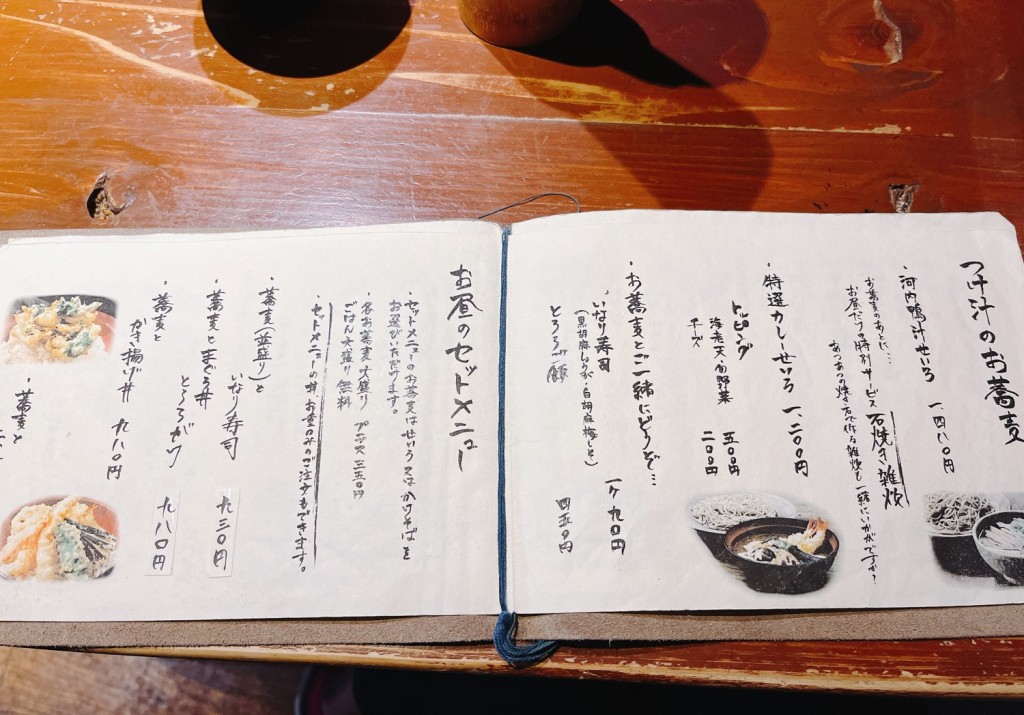 つけ汁のお蕎麦
・河内鴨汁せいろ 一、四八〇円
お蕎麦のあとに…
お昼だけの特別サービス 石焼き雑炊
あつあつの焼き石で作る雑炊も一緒にいかがですか？
・特選カレーせいろ 一、二〇〇円
トッピング
海老天・旬野菜 五〇〇円
チーズ 二〇〇円
・お蕎麦とご一緒にどうぞ…
いなり寿司 一ケ 九〇円
（黒胡麻しょうが・白胡麻梅しそ）
とろろご飯 四五〇円
お昼のセットメニュー
・セットメニューのお蕎麦はせいろ又はかけそばを
お選びいただけます。
・各お蕎麦大盛り プラス三五〇円
ごはん大盛り無料
・セットメニューの丼、お重のみのご注文もできます。
・蕎麦（並盛り）と
いなり寿司 九三〇円
・蕎麦とまぐろ丼
とろろがけ 九八〇円
・蕎麦と
かき揚げ丼 九八〇円
・蕎麦と